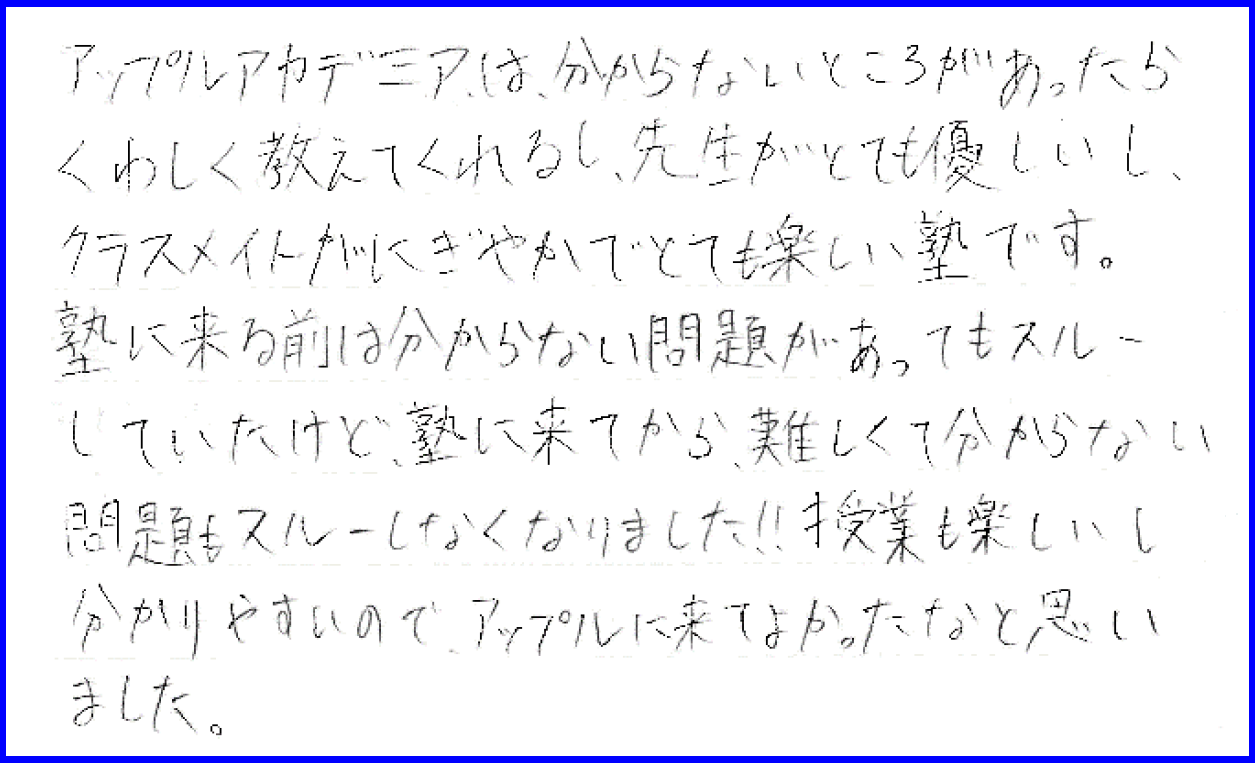 アップルアカデミアは、分からないところがあったら
くわしく教えてくれるし、先生がとても優しいし、
クラスメイトがにぎやかでとても楽しい塾です。
塾に来る前は分からない問題があってもスルー
していたけど、塾に来てから、難しくて分からない
問題もスルーしなくなりました!!授業も楽しいし
分かりやすいので、アップルに来てよかったなと思い
ました。